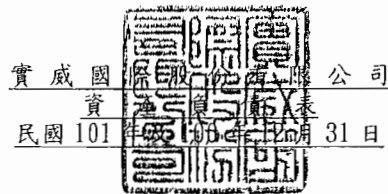 實威國際股份有限公司
資產負債表
民國 101 年及 100 年 12 月 31 日